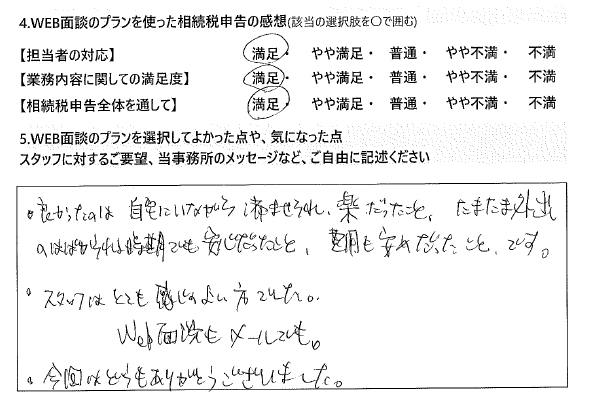 4.WEB面談のプランを使った相続税申告の感想(該当の選択肢を〇で囲む)
【担当者の対応】 満足・ やや満足・ 普通・ やや不満・ 不満
【業務内容に関しての満足度】 満足・ やや満足・ 普通・ やや不満・ 不満
【相続税申告全体を通して】 満足・ やや満足・ 普通・ やや不満・ 不満
5.WEB面談のプランを選択してよかった点や、気になった点
スタッフに対するご要望、当事務所のメッセージなど、ご自由に記述ください
・良かったのは 自宅にいながら 済ませられ、楽だったこと、たまたま外出
のはばかられる時期でも安心だったこと、費用も安めだったこと、です。
・スタッフはとても感じのよい方でした。
Web面談もメールでも。
・今回はどうもありがとうございました。